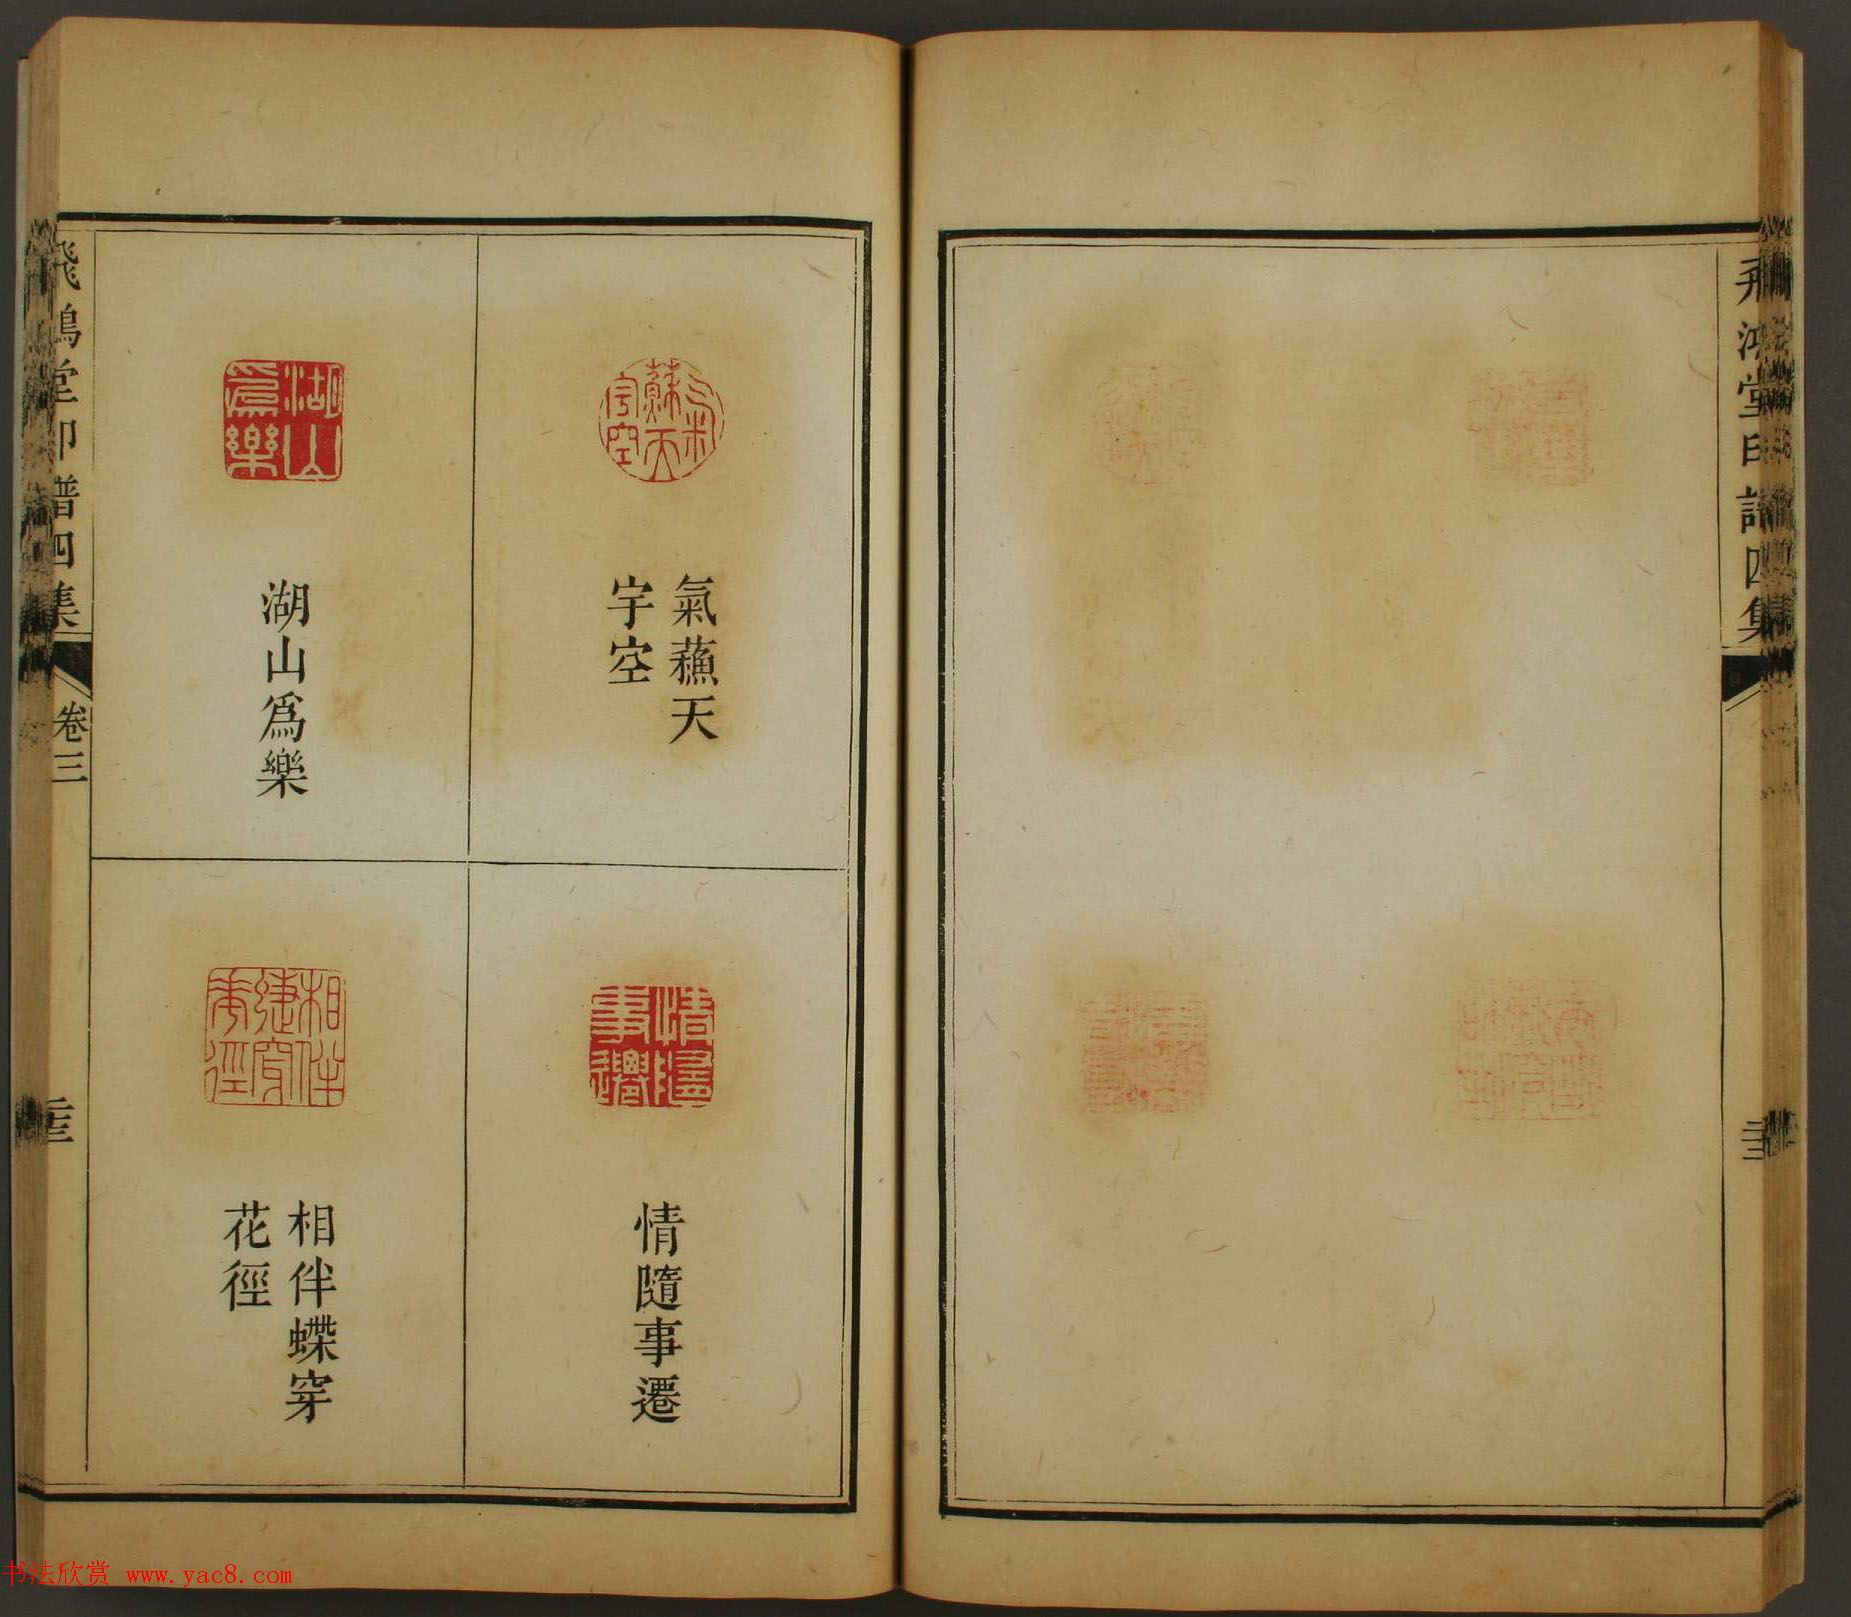 飛鴻堂印譜四集
氣蘓天
宇空
湖山爲樂
情隨事遷
相伴蝶穿
花徑
飛鴻堂印譜四集
卷三
书法欣赏 www.yac8.com